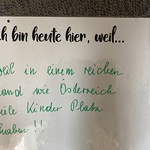 ch bin heute hier, weil...
weil in einem reichen
Land wie Österreich
viele Kinder Platz
haben!!